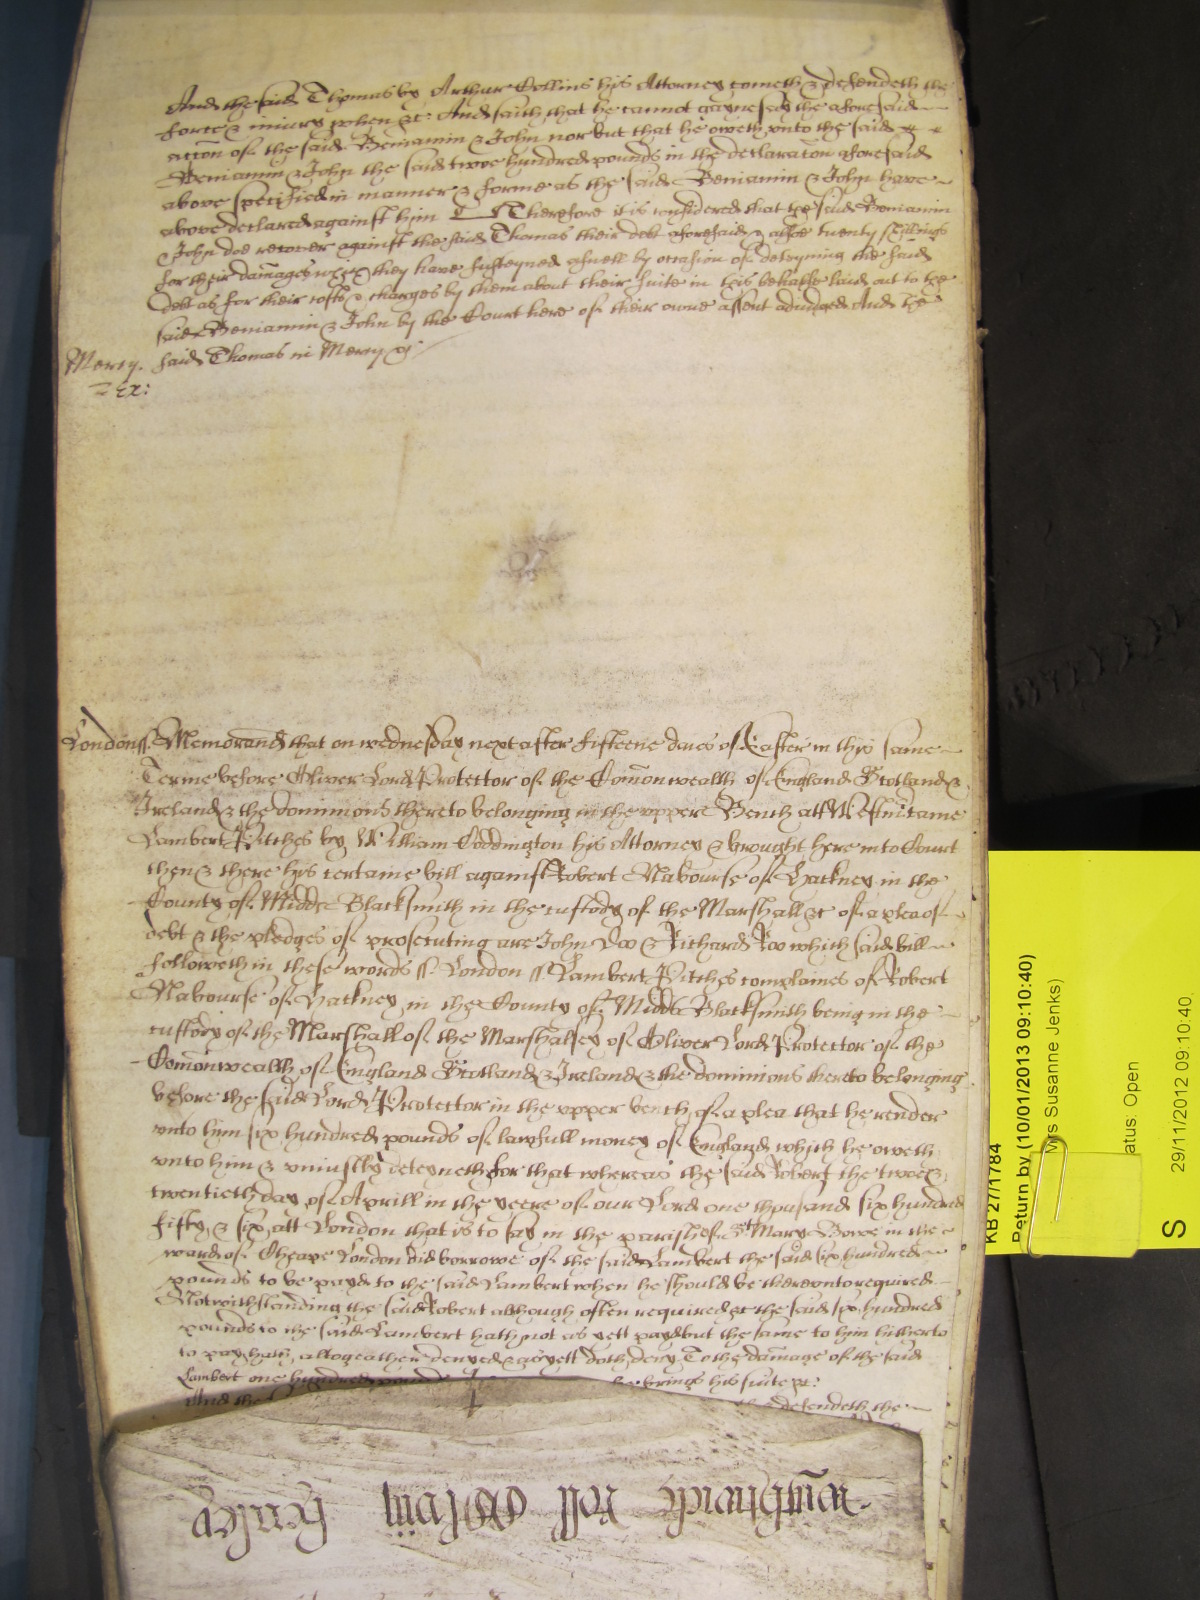 And the said Thomas by Arthur Collins his Attorney cometh & defendeth the
force & iniury when &c: And saith that he cannot gaynesay the aforesaid
accon of the said Beniamin & John nor but that he oweth vnto the said
Beniamin & John the said twoe hundred pounds in the declaracon aforesaid
above specified in manner & forme as the said Beniamin & John have
above declared against him Therefore it is considered that the said Beniamin
& John doe recover against the said Thomas their debt aforesaid & alsoe twenty shillings
for their damages wch they have susteyned aswell by occasion of deteyning the said
debt as for their costs & charges by them about their suite in this behalfe laid out to the
said Beniamin & John by the Court here of their owne assent adiudged And the
Mercy. said Thomas in Mercy &c
Ex:
London ss. Memorand that on wednesday next after fifteene daies of Easter in this same
Terme before Oliver Lord Protector of the Comonwealth of England Scotland &
Ireland & the dominions thereto belonging in the vpper Bench att Westm came
Lambert Pitches by William Coddington his Attorney & brought here into Court
then & there his certaine bill against Robert Nabourse of Hackney in the
County of Midd Blacksmith in the custody of the Marshall &c of a plea of
debt & the pledges of prosecuting are John Doo & Richard Roo which said bill
followeth in these words ss. London ss Lambert Pitches complaines of Robert
Nabourse of Hackney in the County of Midd Blacksmith being in the
custody of the Marshall of the Marshalsey of Oliver Lord Protector of the
Comonwealth of England Scotland & Ireland & the dominions thereto belonging
before the said Lord Protector in the vpper bench of a plea that he render
vnto him six hundred pounds of lawfull money of England which he oweth
vnto him & vniustly deteyneth for that whereas the said Robert the twoe &
twentieth day of Aprill in the yeere of our Lord one thousand six hundred
fifty & six att London that is to say in the parish of St Mary Bowe in the
ward of Cheape London did borrowe of the said Lambert the said six hundred
pounds to be payd to the said Lambert when he should be therevnto required
Notwithstanding the said Robert although often required &c the said six hundred
pounds to the said Lambert hath not as yett payd but the same to him hitherto
to pay hath altogeather denyed & as yett doth deny To the damage of the said
Lambert one hundred pounds he brings his suite &c:
And the defendeth the
roll
KB 27/1784
Return by (10/01/2013 09:10:40)
Mrs Susanne Jenks)
atus: Open
29/11/2012 09:10:40
S